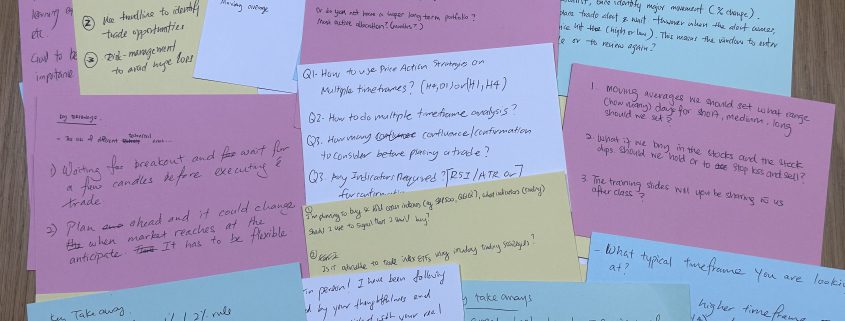 learning
etc.
Good to be
importance
② Use trendline to identify
trade opportunities
③ Risk-management
to avoid huge loss
Moving average
Or do you not have a super long term portfolio?
most active allocation? (months?)
identify major movement (% change).
trade alert & wait. However when the alert comes,
(high or low). This means the window to enter
or to review again?
Q1- How to use Price Action Strategies on
Multiple timeframes? (H4,D1) or (H1, H4)
Q2- How to do multiple timeframe analysis?
Q3. How many confluence/confirmation
to consider before placing a trade?
Q3. Any Indicators Required? [RSI/ATR or]
for
1. moving averages we should set what range
(how many) days for short, medium, long
should we set?
2. What if we buy in the stocks and the stock
dips. Should we hold or to stop loss and sell?
3. The training slides will you be sharing to us
after class?
Key takeaways
- The use of different technical
1) Waiting for breakout and wait for
a few candles before executing a
trade
2) Plan ahead and it could change
when market reaches at the
anticipate. It has to be flexible.
①
I'm planning to buy & hold index
should I use to signal that I should buy?
②
Is it advisable to trade index ETFs using trading strategies?
in person! I have been following
by your thoughtfulness and
with your real
Key Takeaway
2% rule
key take aways
- What typical timeframe you are looking
at?
higher timeframe